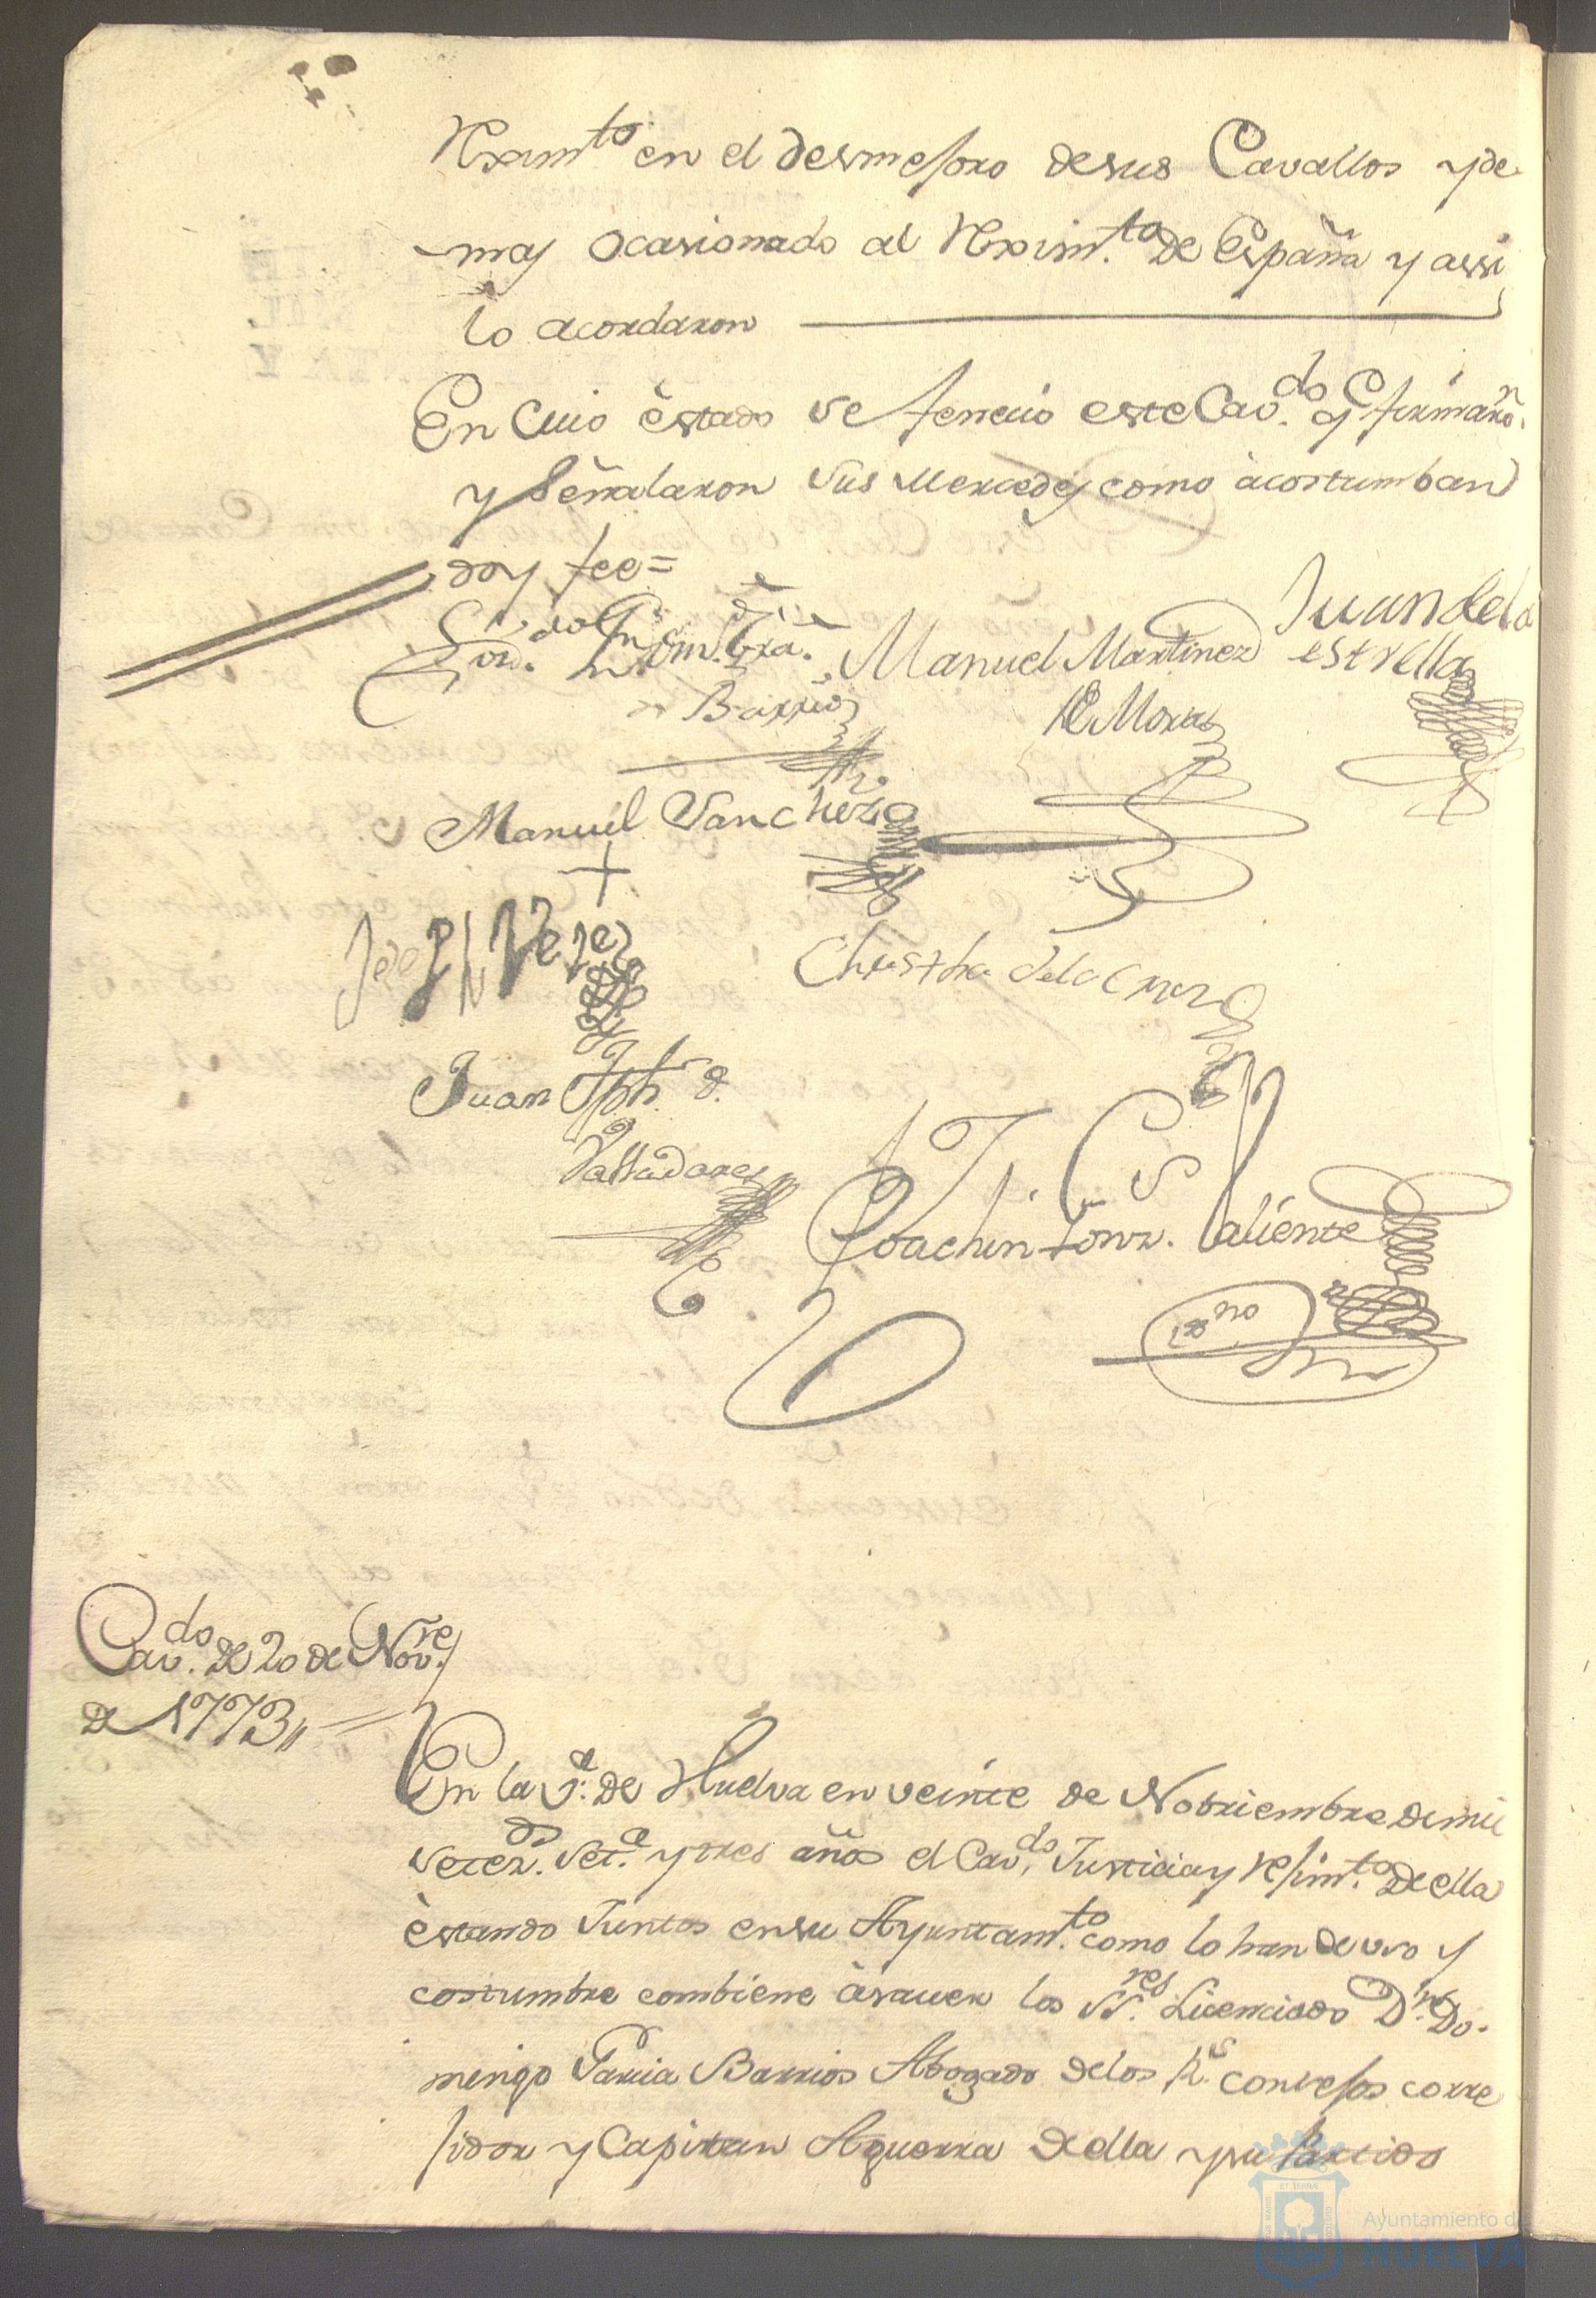 Reximto en el desmejoro de sus Cavallos y de
mas ocasionado al Reximto. de España y assi
lo acordaron
En Cuio èstado se feneció este Cavdo. y firmaron.
y señalaron sus Mercedes como àcostumban
doy fee=
Lizdo. Dn. Dom. Gra.
Barrios
Manuel Martinez
de Mora
Juan de la
estrella
Manuel Sanchez
Velez
Christbl de la Cruz
Juan Jph d.
Valladares
Joachin Gonz. Valiente
Esno
Cavdo. de 20 de Novre.
de 1773
En la Va. de Huelva en veinte de Nobriembre de mil
setezos. seta. y tres años el Cavdo. Justicia y rejimto. de ella
èstando Juntos en su Ayuntamto. como lo han de uso y
costumbre combiene àsauer los SSres. Licenciado Dn. Do-
mingo Garcia Barrios Abogado de los Rs. consejos corre
jidor y Capitan Aguerra de ella y su Partido
Ayuntamiento de
HUELVA